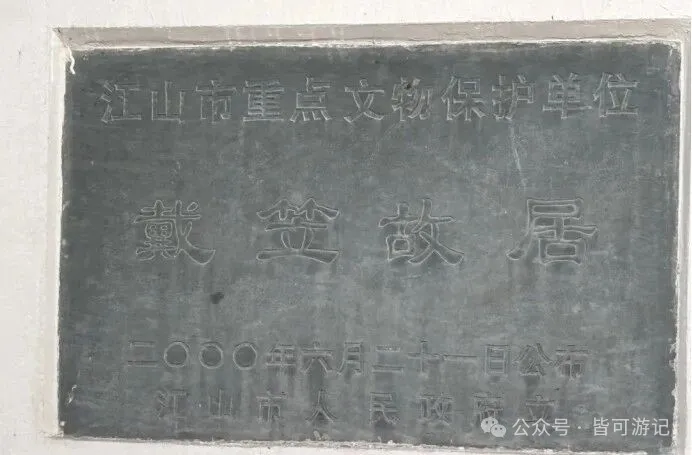 江山市重点文物保护单位
戴笠故居
二〇〇〇年六月二十一日公布
江山市人民政府立
公众号·皆可游记